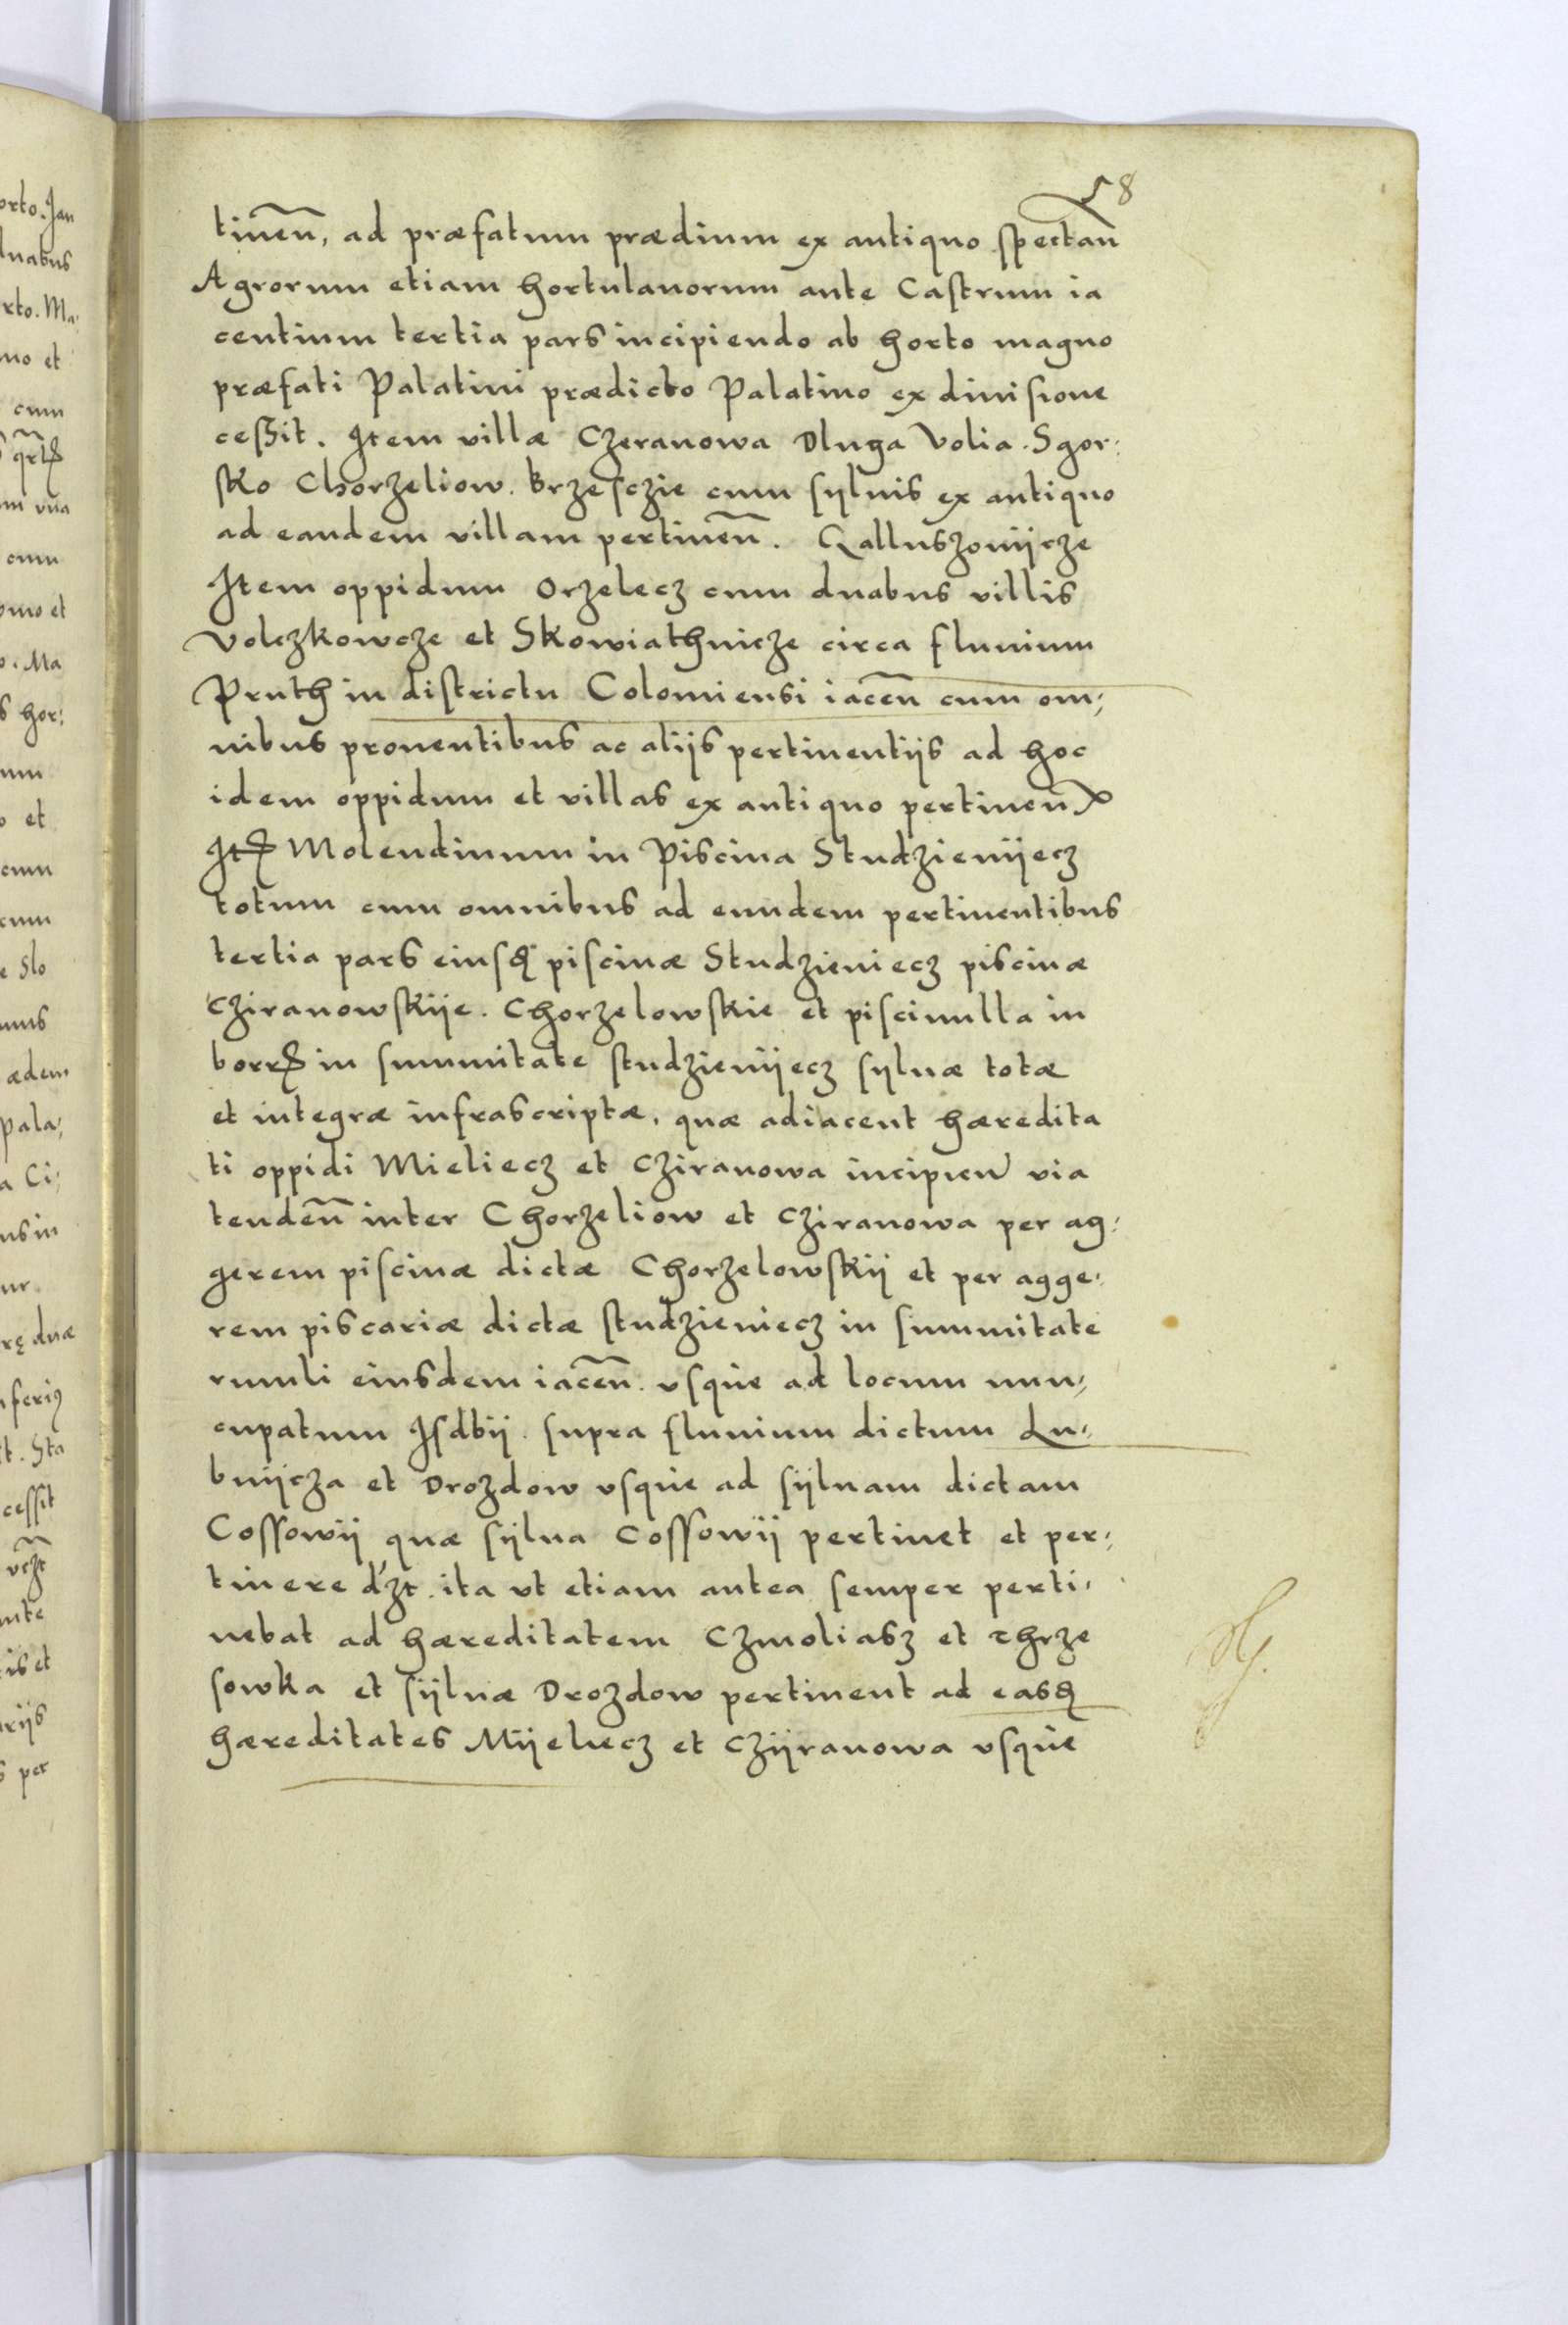 58
tinen̄, ad præfatum prædium ex antiquo spectan̄
Agrorum etiam hortulanorum ante Castrum ia
centium tertia pars incipiendo ab horto magno
præfati Palatini prædicto Palatino ex diuisione
cessit. Item villæ Czeranowa Dluga Volia. Sgor:
sko Chorzeliow. Brzesczie cum syluis ex antiquo
ad eandem villam pertinen̄. Galluszowijcze
Item oppidum Orzelecz cum duabus villis
Volczkowcze et Skowiathnicze circa fluuium
Pruth in districtu Colomiensi iacen̄ cum om;
nibus prouentibus ac alijs pertinentijs ad hoc
idem oppidum et villas ex antiquo pertinen̄
Itꝫ Molendinum in Piscina Studzienijecz
totum cum omnibus ad eundem pertinentibus
tertia pars eiusdꝫ piscinæ Studzieniecz piscinæ
Cziranowskije. Chorzelowskie et piscinulla in
borrꝫ in summitate studzienijecz syluæ totæ
et integræ infrascriptæ, quæ adiacent hæredita
ti oppidi Mieliecz et Cziranowa incipien̄ via
tenden̄ inter Chorzeliow et Cziranowa per ag:
gerem piscinæ dictæ Chorzelowskij et per agge:
rem piscariæ dictæ studzieniecz in summitate
riuuli eiusdem iacen̄. vsque ad locum nun;
cupatum Isdbij. supra fluuium dictum Lu;
bnijcza et Drozdow vsque ad sijluam dictam
Cossowij quæ sijlua Cossowij pertinet et per;
tinere dꝫt. ita vt etiam antea semper perti;
nebat ad hæreditatem Czmoliasz et Thrze
sowka et sijluæ Drozdow pertinent ad easdꝫ
hæreditates Mijeliecz et Czijranowa vsque